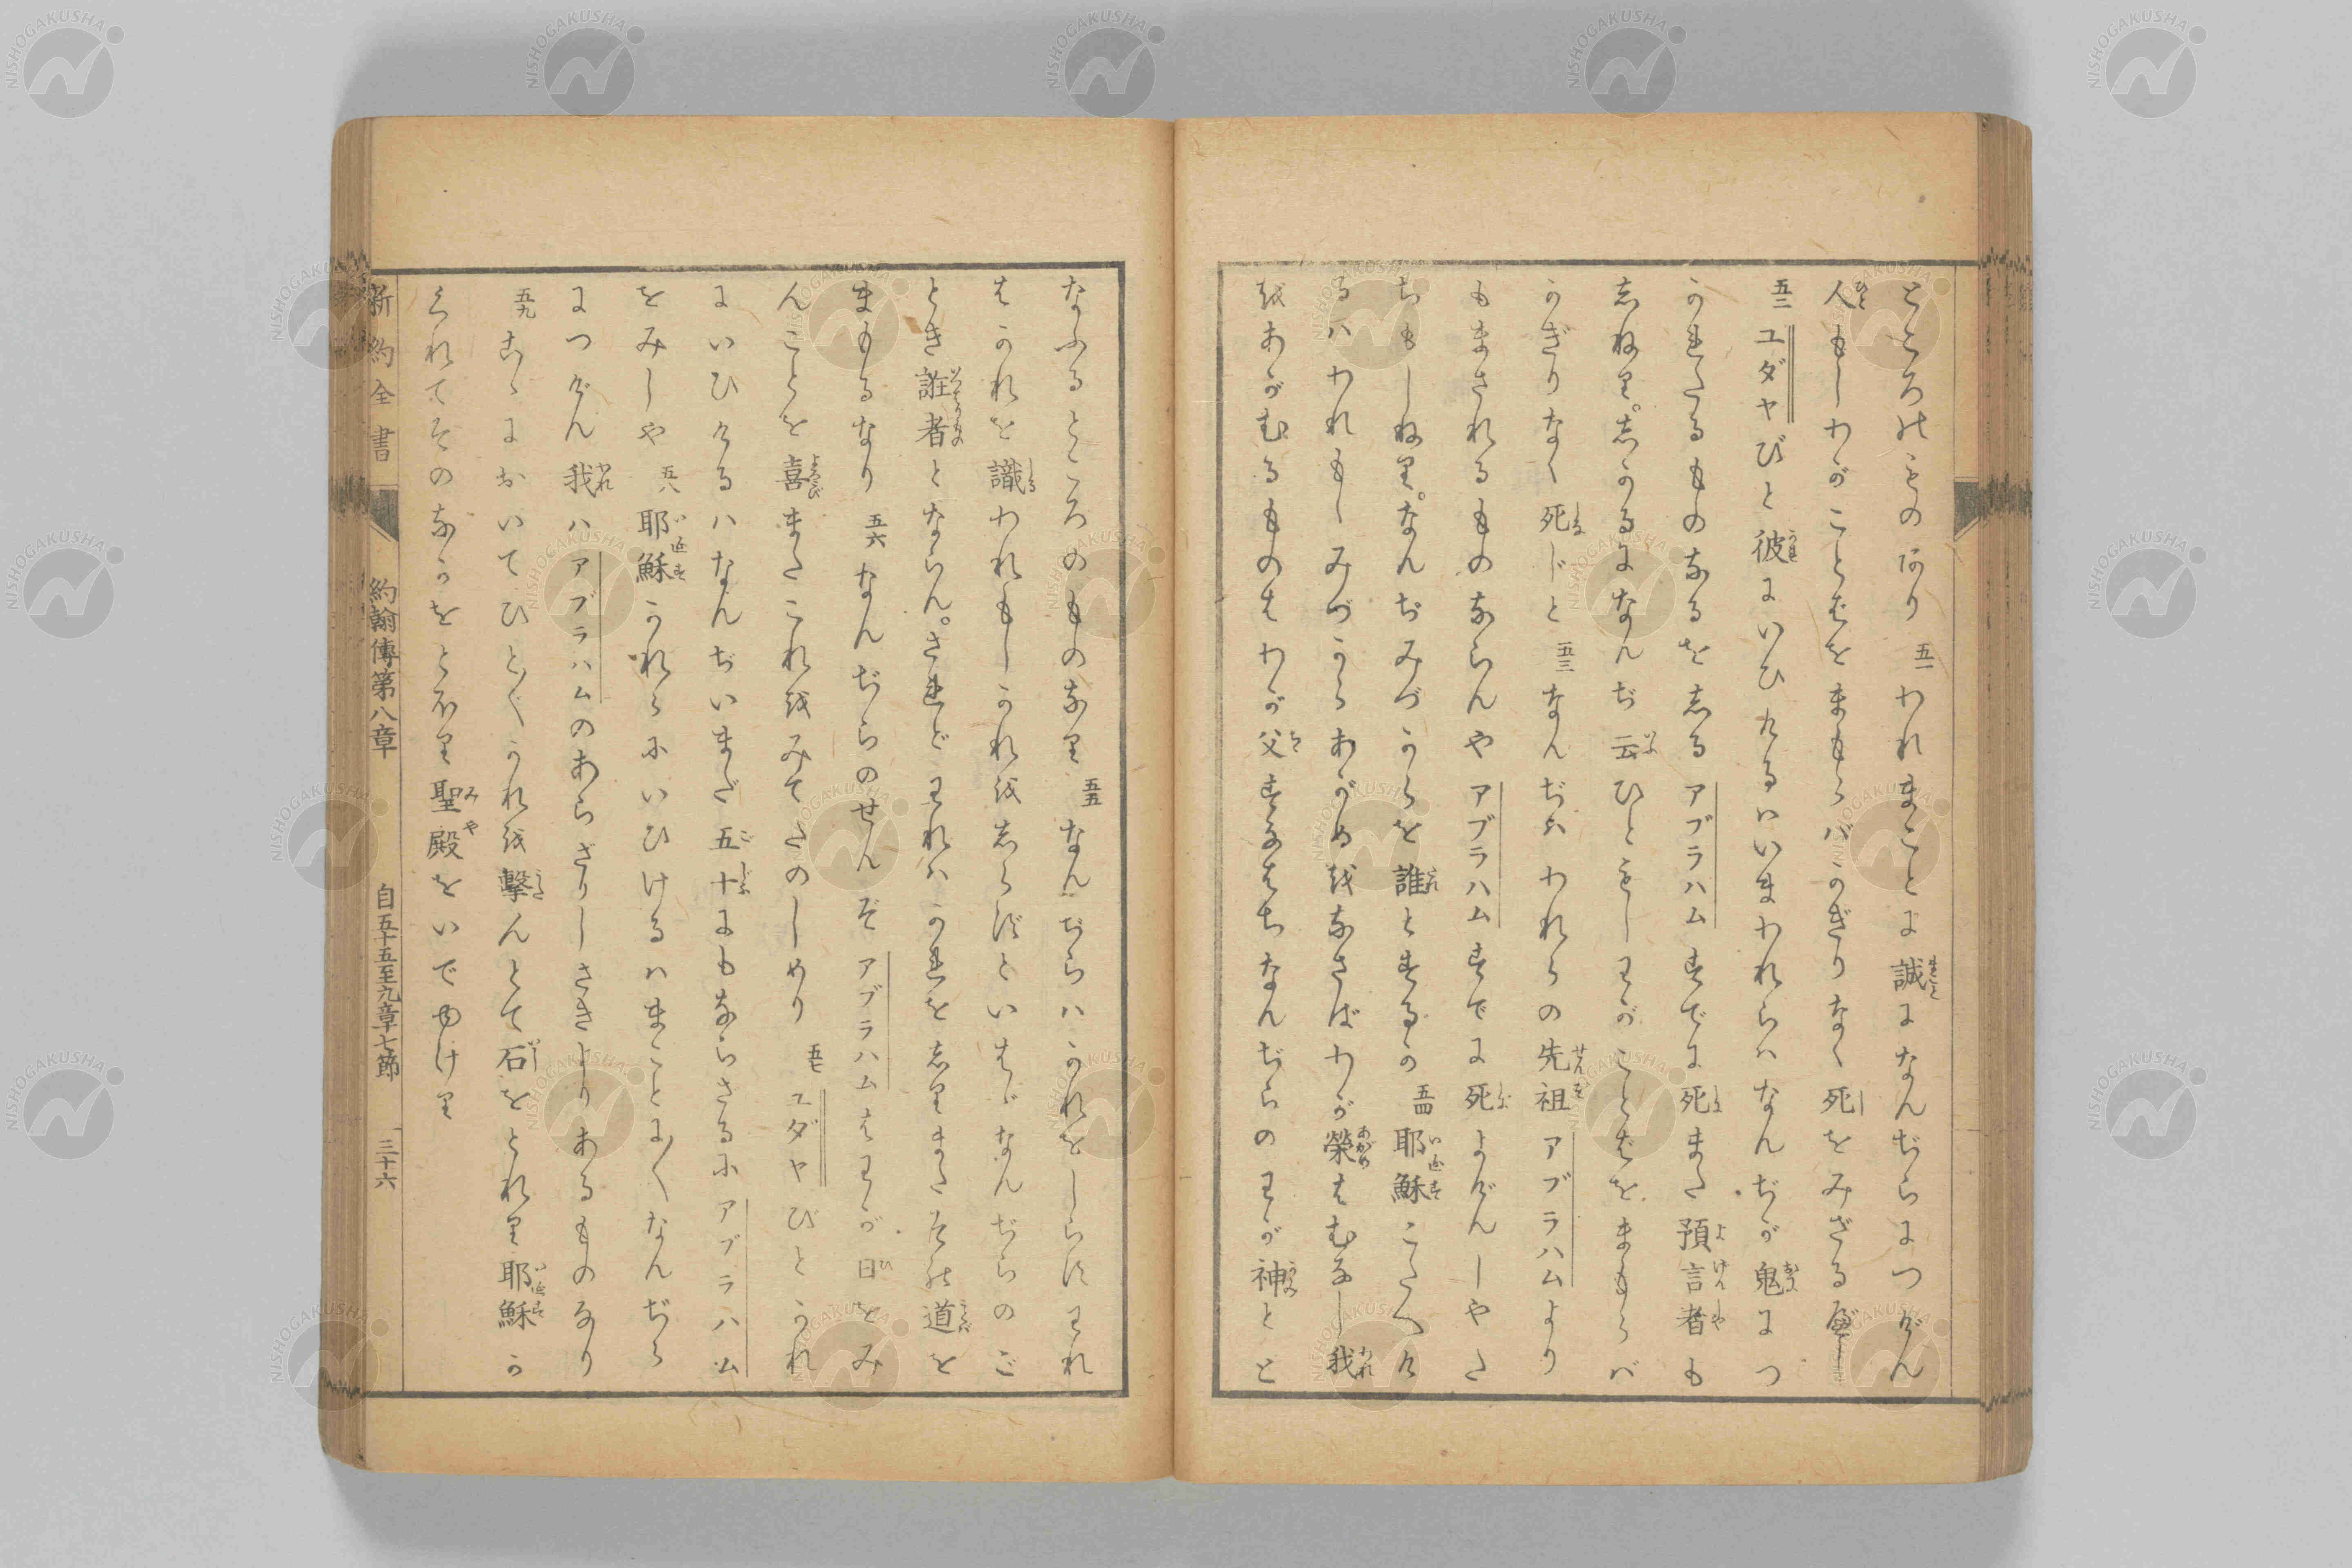 ところのものなり 五一 われまことに誠になんぢらにつげん
人もしわがことばをまもらバかぎりなく死をみざるべし
五二 ユダヤびと彼にいひけるハいまわれらハなんぢが鬼につ
かれたるものなるをしるアブラハムすでに死また預言者も
しねり。しかるになんぢ云ひともしわがことばをまもらバ
かぎりなく死じと 五三 なんぢハわれらの先祖アブラハムより
もまされるものならんやアブラハムすでに死よげんしやた
ちもしねり。なんぢみづからを誰とするか 五四 耶穌こたへけ
るハわれもしみづからあがめをなさばわが榮はむなし我
をあがむるものはわが父すなはちなんぢらのわが神とと
なふるところのものなり 五五 なんぢらハかれをしらずわれ
はかれを識われもしかれをしらずといはゞなんぢらのご
とき誑者とならん。されどわれハかれをしりまたその道を
まもるなり 五六 なんぢらのせんぞアブラハムはわが日をみ
んことを喜またこれをみてたのしめり 五七 ユダヤびとかれ
にいひけるハなんぢいまだ五十にもならざるにアブラハム
をみしや 五八 耶穌かれらにいひけるハまことに〳〵なんぢら
につげん我ハアブラハムのあらざりしさきよりあるものなり
五九 こゝにおいてひと〴〵かれを擊んとて石をとれり耶穌か
くれてそのなかをとほり聖殿をいでゆけり
新約全書 約翰傳第八章 自五十五至九章七節 三十六
NISHOGAKUSHA